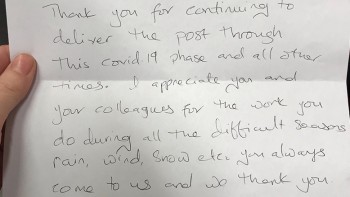 Thank you for continuing to
deliver the post through
this covid 19 phase and all other
times. I appreciate you and
your colleagues for the work you
do during all the difficult seasons
rain, wind, snow etc. you always
come to us and we thank you.